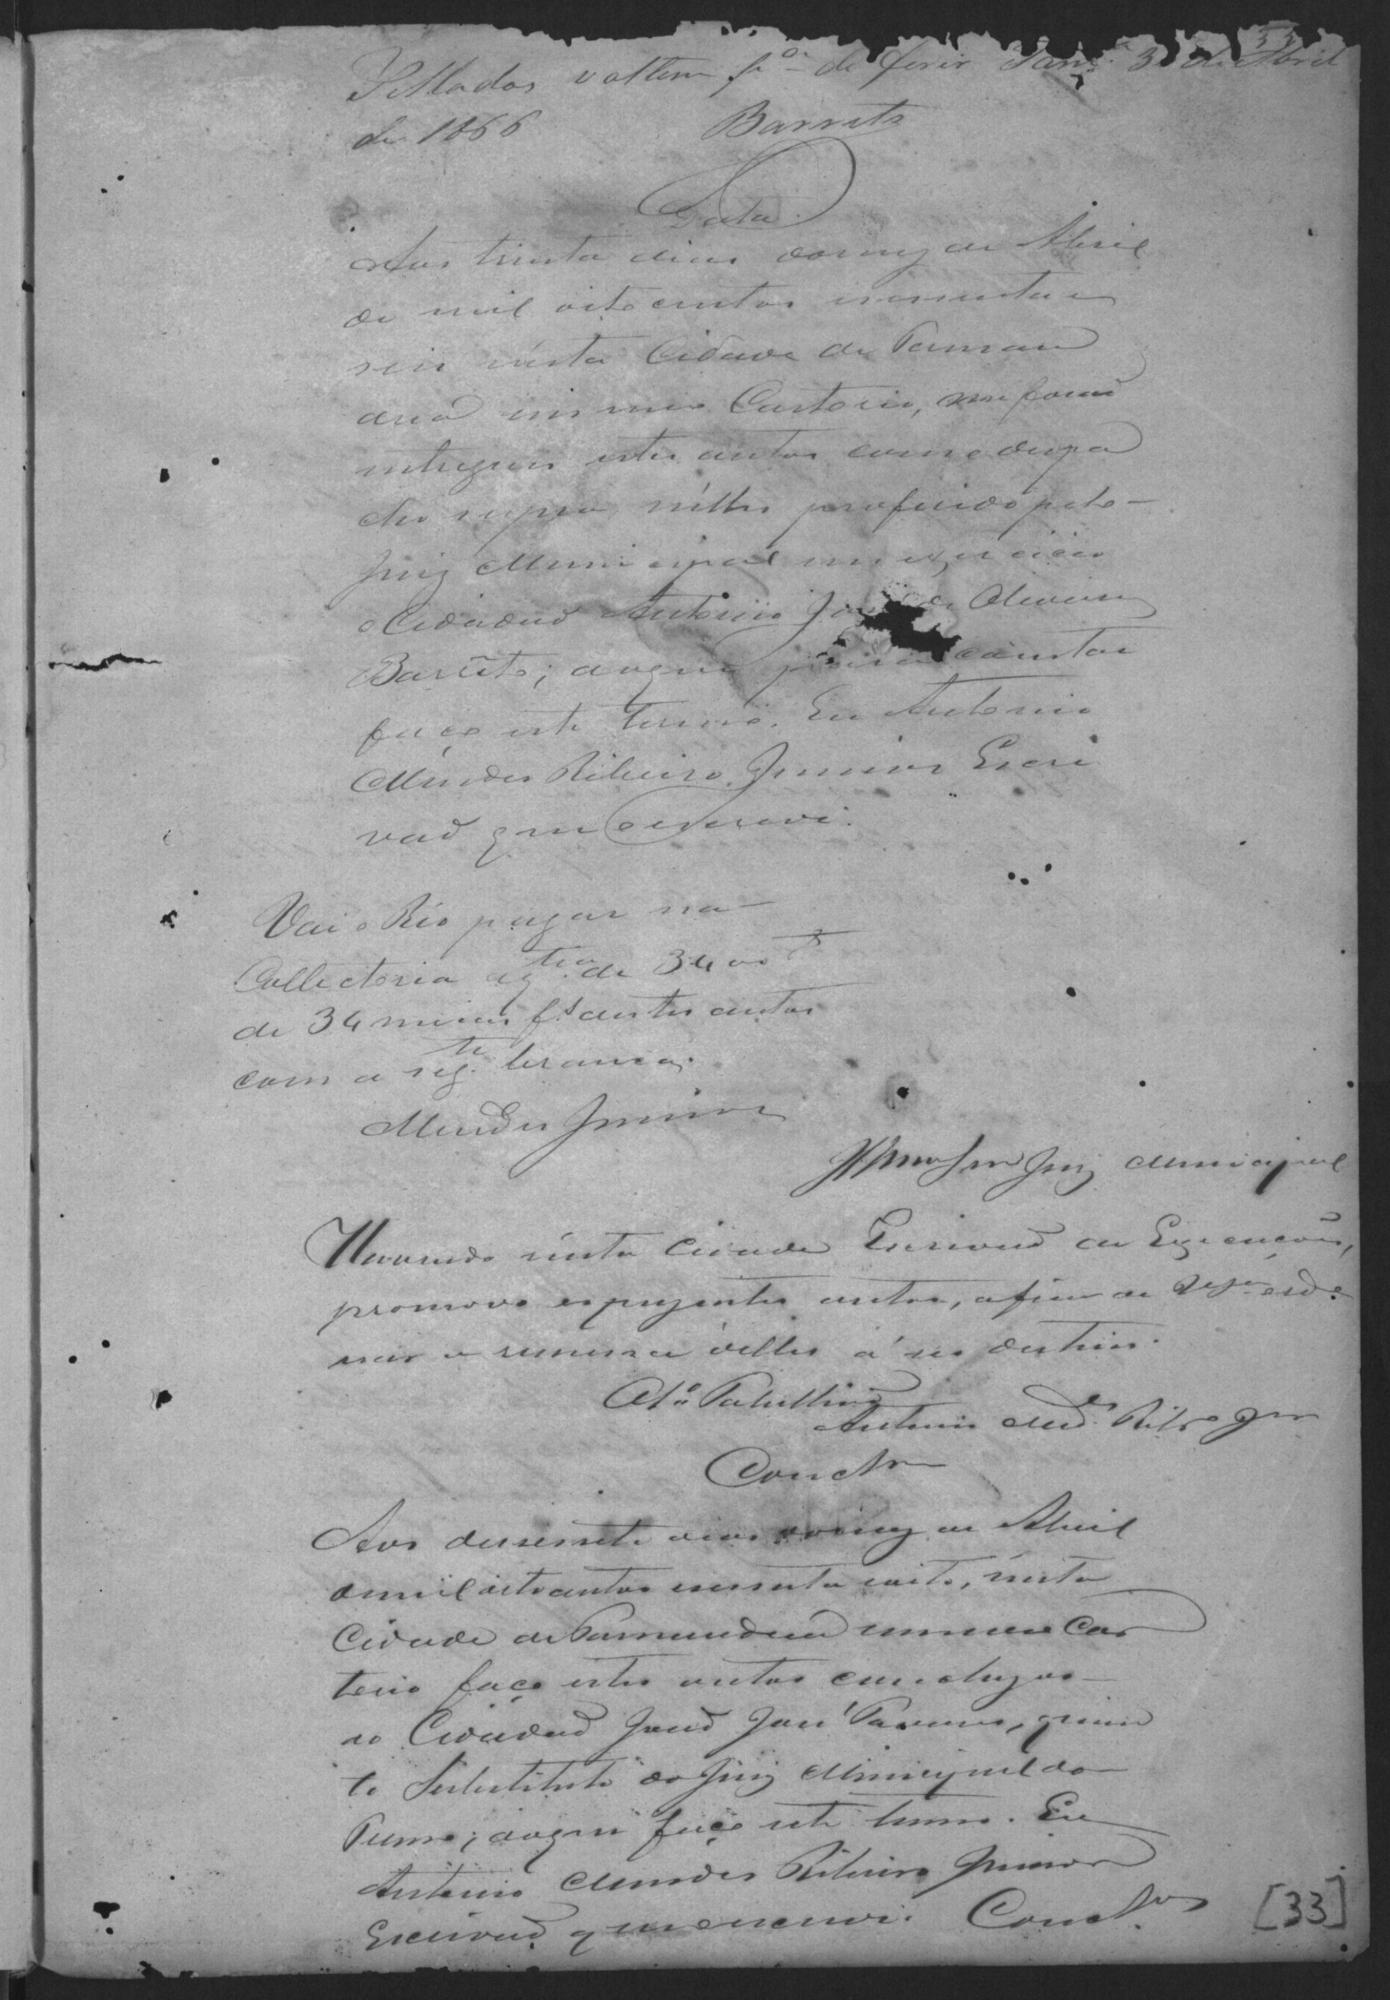 33
Sellados voltem p.ª deferir Tam.ᵉ 30 de Abril
de 1866 Barreto
Data
Aos trinta dias do mez de Abril
de mil oito centos sessenta e
seis nésta Cidade de Taman
daré em meu Cartorio, me forão
entregues estes autos com o despa
cho supra, nélles proferido pelo
Juiz Municipal em exercicio
o Cidadão Antonio José de Oliveira
Barreto; do que para constar
faço este termo. Eu Antonio
Mendes Ribeiro Junior Escri
vão que o escrevi.
Vai o Réo pagar na
Collectoria a q.tia de 3400 rs
de 34 meias f.s destes autos
com a seg.te branca.
Mendes Junior
Illmo Snr Juiz Municipal
Havendo nésta Cidade Escrivão de Execuções,
promovo os prezentes autos, afim de V.Sª orde
nar a remessa délles á seu destino.
O 1º Tabellião
Antonio Md.es Ribr.o Jnr
Concl.am
Aos desesete dias do mez de Abril
de mil oito centos sessenta e oito, nésta
Cidade de Tamandaré em meu Car
torio faço estes autos conclusos
ao Cidadão João José Tavares, quin
to Substituto do Juiz Municipal do
Termo; do que faço este termo. Eu
Antonio Mendes Ribeiro Junior
Escrivão que o escrevi. Concl.os
[33]